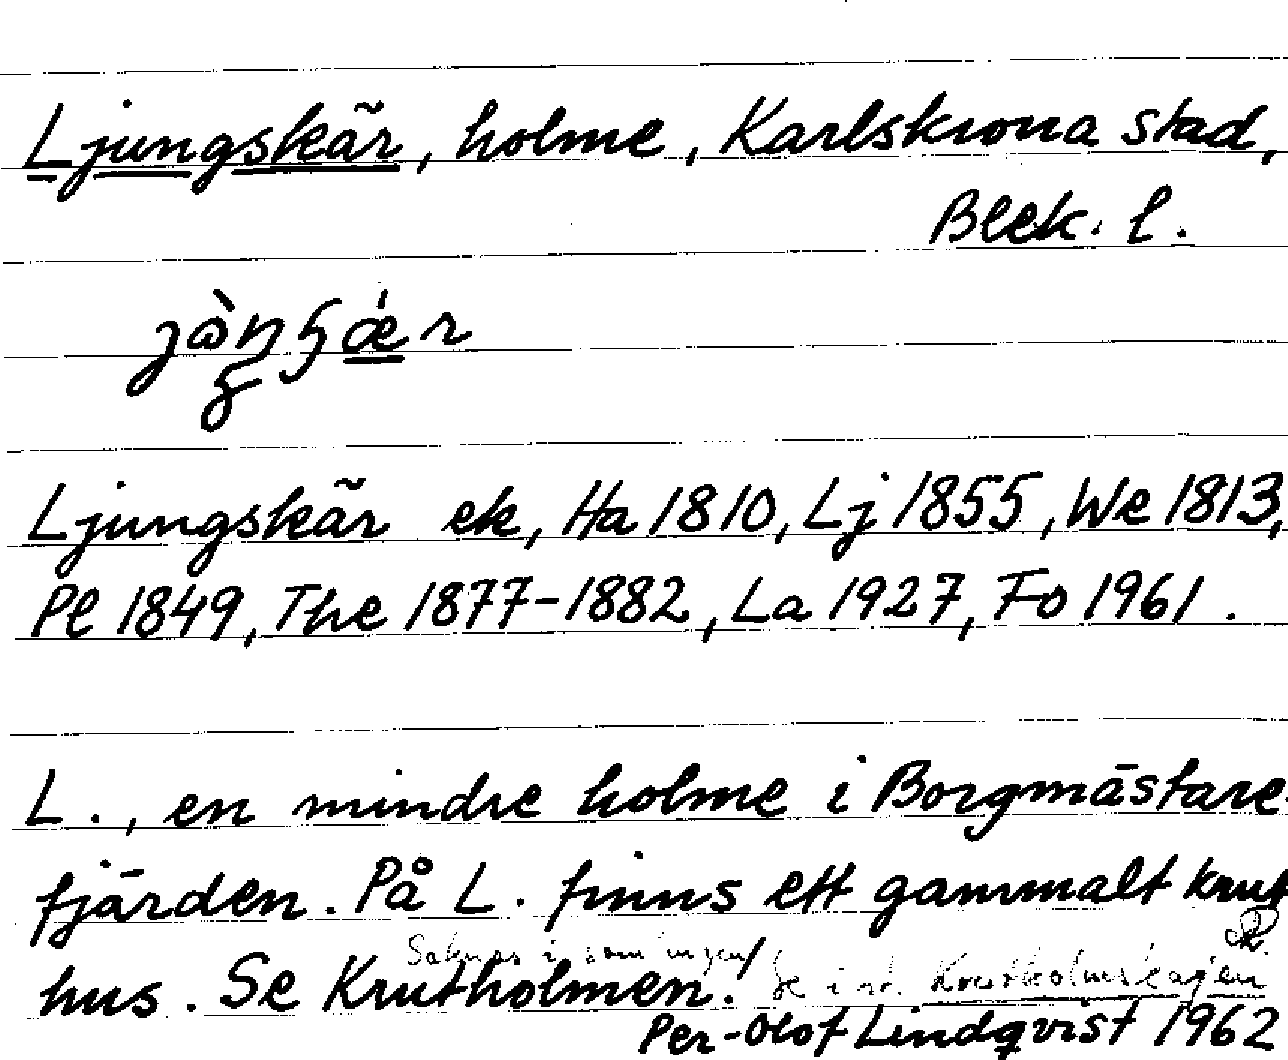 Ljungskär, holme, Karlskrona stad,
Blek. l.
Ljungskär ek, Ha 1810, Lj 1855, We 1813,
Pl 1849, The 1877-1882, La 1927, Fo 1961.
L., en mindre holme i Borgmästare
fjärden. På L. finns ett gammalt krut
Saknas i
hus. Se Krutholmen. Se i st. Krutholmskajen
Per-Olof Lindqvist 1962